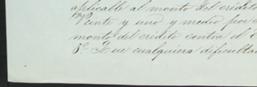 aplicable al monto del crédito
Veinte y uno y medio por c
monto del crédito contra el
5º Que cualquiera dificultad